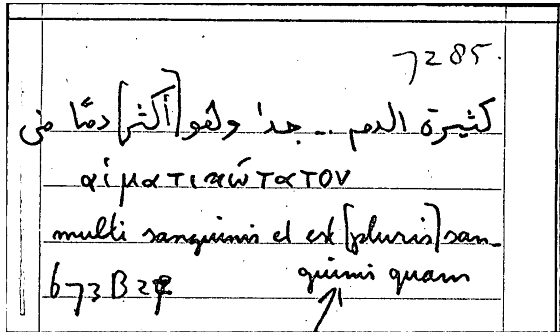 7285.
كثيرة الدم .. جدا وهو [أكثر] دمًا من
αἱματικώτατον
multi sanguinis et est [pluris] san-
guinis quam
673 B 27